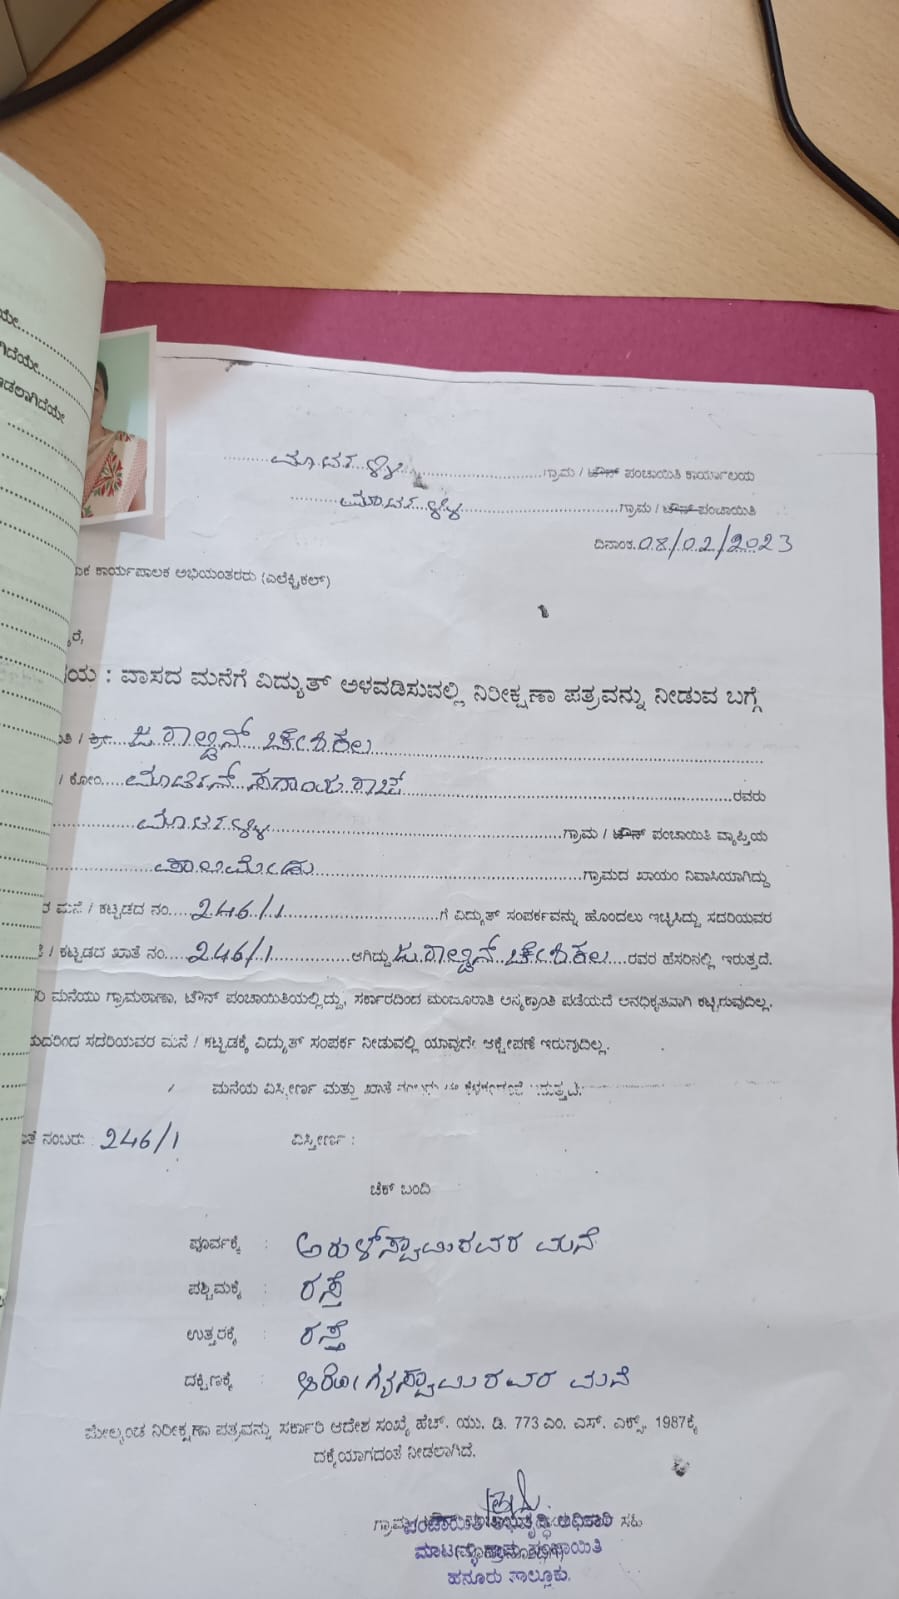 ಯೇ
ಗಿದೆಯೇ
ಡಲಾಗಿದೆಯೇ
ಮಾರ್ಟಳ್ಳಿ ಗ್ರಾಮ / ಟೌನ್ ಪಂಚಾಯಿತಿ ಕಾರ್ಯಾಲಯ
ಮಾರ್ಟಳ್ಳಿ ಗ್ರಾಮ / ಟೌನ್ ಪಂಚಾಯಿತಿ
ದಿನಾಂಕ. 08/02/2023
ಕ ಕಾರ್ಯಪಾಲಕ ಅಭಿಯಂತರರು (ಎಲೆಕ್ಟ್ರಿಕಲ್)
ರೆ,
ಯ : ವಾಸದ ಮನೆಗೆ ವಿದ್ಯುತ್ ಅಳವಡಿಸುವಲ್ಲಿ ನಿರೀಕ್ಷಣಾ ಪತ್ರವನ್ನು ನೀಡುವ ಬಗ್ಗೆ
ತಿ / ಶ್ರೀ
/ ಕೋಂ ರವರು
ಮಾರ್ಟಳ್ಳಿ ಗ್ರಾಮ / ಟೌನ್ ಪಂಚಾಯಿತಿ ವ್ಯಾಪ್ತಿಯ
ಗ್ರಾಮದ ಖಾಯಂ ನಿವಾಸಿಯಾಗಿದ್ದು
ರ ಮನೆ / ಕಟ್ಟಡದ ನಂ. 246/1 ಗೆ ವಿದ್ಯುತ್ ಸಂಪರ್ಕವನ್ನು ಹೊಂದಲು ಇಚ್ಛಿಸಿದ್ದು ಸದರಿಯವರ
/ ಕಟ್ಟಡದ ಖಾತೆ ನಂ. 246/1 ಆಗಿದ್ದು ರವರ ಹೆಸರಿನಲ್ಲಿ ಇರುತ್ತದೆ.
ಮನೆಯು ಗ್ರಾಮಠಾಣಾ, ಟೌನ್ ಪಂಚಾಯಿತಿಯಲ್ಲಿದ್ದು, ಸರ್ಕಾರದಿಂದ ಮಂಜೂರಾತಿ ಪಡೆಯದೆ ಅನಧಿಕೃತವಾಗಿ ಕಟ್ಟಿರುವುದಿಲ್ಲ.
ದರಿಂದ ಸದರಿಯವರ ಮನೆ / ಕಟ್ಟಡಕ್ಕೆ ವಿದ್ಯುತ್ ಸಂಪರ್ಕ ನೀಡುವಲ್ಲಿ ಯಾವುದೇ ಆಕ್ಷೇಪಣೆ ಇರುವುದಿಲ್ಲ.
ಮನೆಯ ವಿಸ್ತೀರ್ಣ ಮತ್ತು ಖಾತೆ
ತೆ ನಂಬರು : 246/1 ವಿಸ್ತೀರ್ಣ :
ಚೆಕ್ ಬಂದಿ
ಪೂರ್ವಕ್ಕೆ : ಅರುಳ್‌ಸ್ವಾಮಿರವರ ಮನೆ
ಪಶ್ಚಿಮಕ್ಕೆ : ರಸ್ತೆ
ಉತ್ತರಕ್ಕೆ : ರಸ್ತೆ
ದಕ್ಷಿಣಕ್ಕೆ : ಆರೋಗ್ಯಸ್ವಾಮಿರವರ ಮನೆ
ಮೇಲ್ಕಂಡ ನಿರೀಕ್ಷಣಾ ಪತ್ರವನ್ನು ಸರ್ಕಾರಿ ಆದೇಶ ಸಂಖ್ಯೆ ಹೆಚ್. ಯು. ಡಿ. 773 ಎಂ. ಎನ್. ಎಕ್ಸ್. 1987ಕ್ಕೆ
ದಕ್ಕೆಯಾಗದಂತೆ ನೀಡಲಾಗಿದೆ.
ಪಂಚಾಯಿತಿ ಅಭಿವೃದ್ಧಿ ಅಧಿಕಾರಿ ಸಹಿ
ಮಾರ್ಟಳ್ಳಿ ಗ್ರಾಮ ಪಂಚಾಯಿತಿ
ಹನೂರು ತಾಲ್ಲೂಕು.